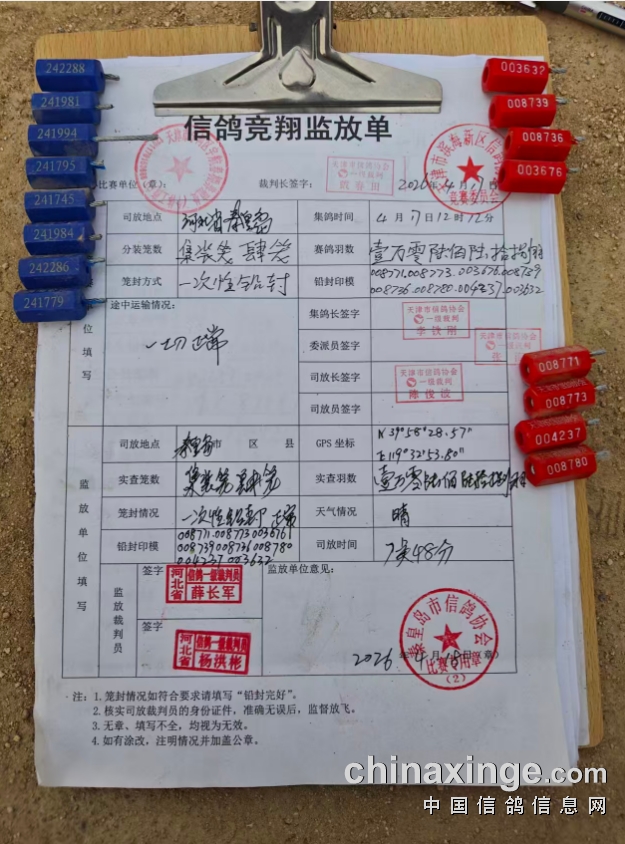 242288
241981
241994
241795
241745
241984
242286
241779
003632
008739
008736
003676
信鸽竞翔监放单
比赛单位（章）： 裁判长签字： 2026年4月17日
天津市信鸽协会
一级裁判
司放地点 河北省秦皇岛 集鸽时间 4月17日12时12分
分装笼数 集装笼肆笼 赛鸽羽数 壹万零陆佰陆拾捌羽
笼封方式 一次性铅封 铅封印模 008771.008773.003676.008739
008736.008780.004237.003632
途中运输情况： 集鸽长签字
一切正常 委派员签字
司放长签字
司放员签字
天津市信鸽协会
一级裁判
李铁刚
天津市信鸽协会
一级裁判
天津市信鸽协会
一级裁判
陈俊波
位填写
008771
008773
004237
008780
监放单位填写
司放地点 秦皇岛市 区 县 GPS 坐标 N 39°58'28.57"
E119°32'53.80"
实查笼数 集装笼肆笼 实查羽数 壹万零陆佰陆拾捌羽
笼封情况 一次性铅封 正常 天气情况 晴
铅封印模 008771.008773.003676
008739008736008780
004237.003632
司放时间 7时48分
监放裁判员
签字
河北省
信鸽一级裁判员
薛长军
签字
河北省
信鸽一级裁判员
杨洪彬
监放单位意见：
秦皇岛市信鸽协会
比赛专用章
（2）
2026年4月18日（章）
注：1. 笼封情况如符合要求请填写“铅封完好”。
2. 核实司放裁判员的身份证件，准确无误后，监督放飞。
3. 无章、填写不全，均视为无效。
4. 如有涂改，注明情况并加盖公章。
chinaxinge.com
中国信鸽信息网